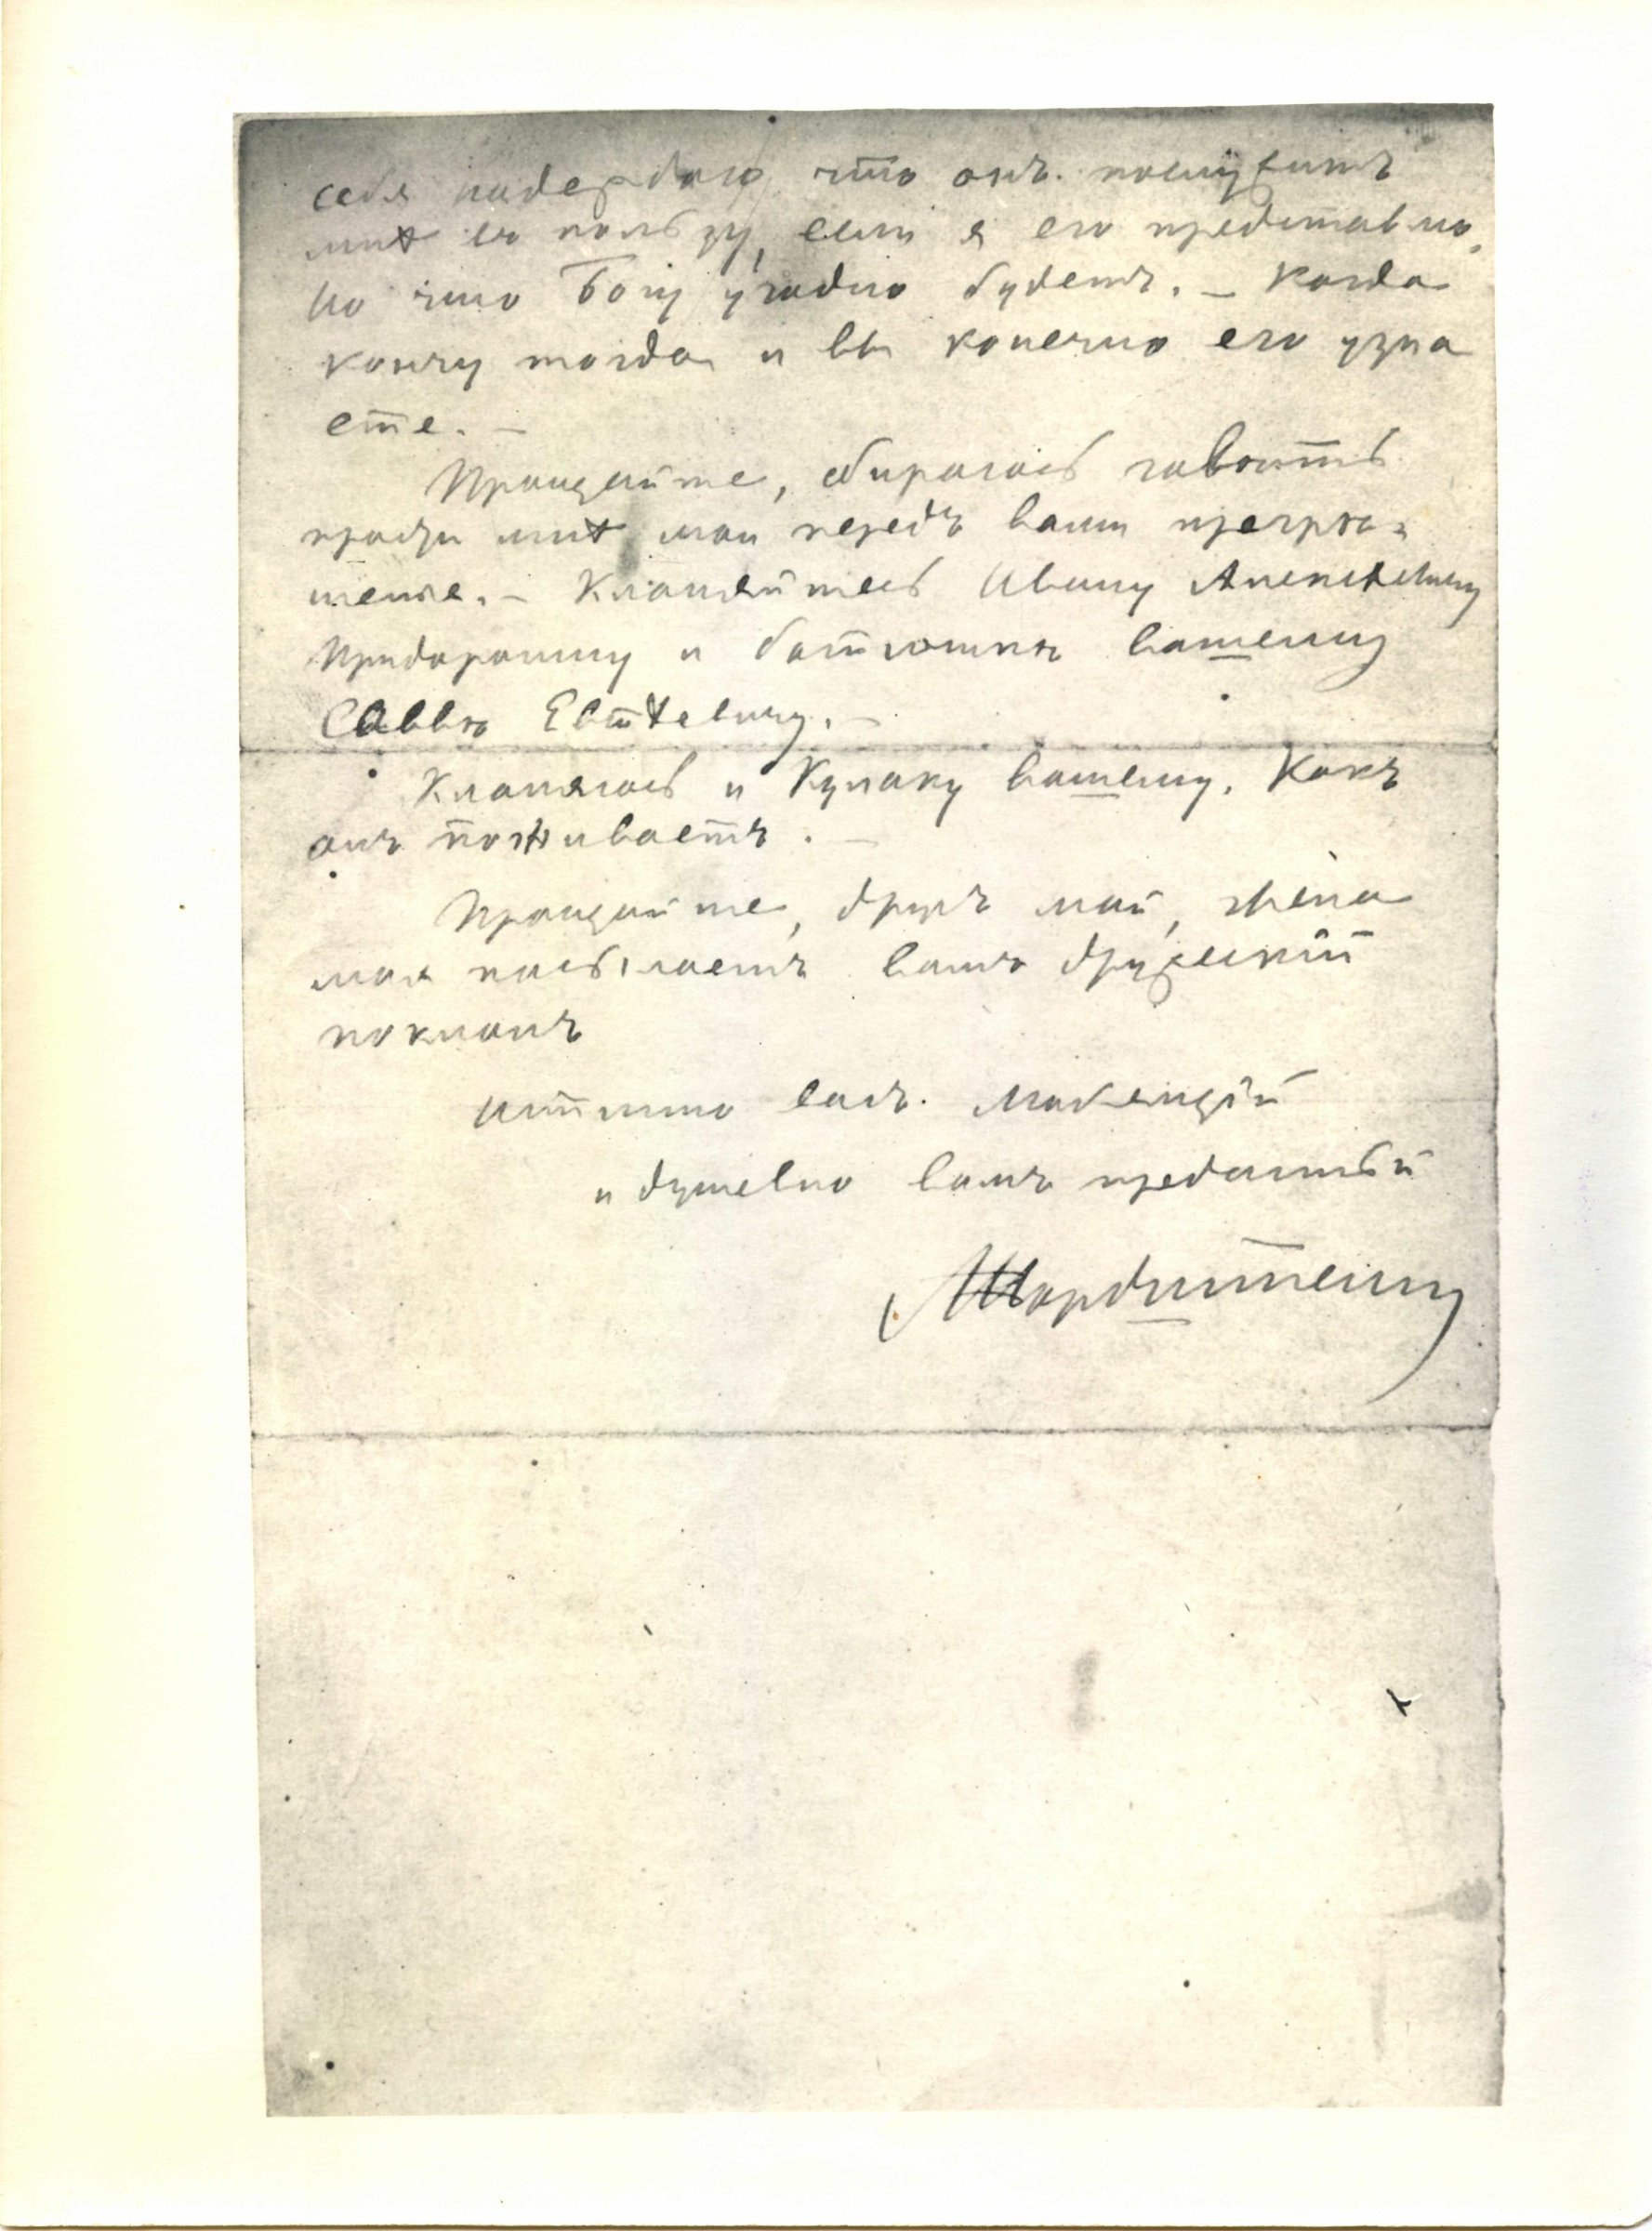 себя надежду, что онъ послужитъ
мнѣ въ пользу, если я его представлю,
но что Богу угодно будетъ. – Когда
кончу тогда и вы конечно его узна
ете. –
Прощайте, сбираюсь говѣть
прости мнѣ мои передъ вами прегрѣ=
шенія. – Кланяйтесь Ивану Алексѣевичу
Придорогину и батюшкѣ вашему
Саввѣ Евтѣевичу. –
Кланяюсь и Кулаку вашему. Какъ
онъ поживаетъ. –
Прощайте, другъ мой, жена
моя посылаетъ вамъ дружескій
поклонъ
Истинно васъ любящій
и душевно вамъ преданный